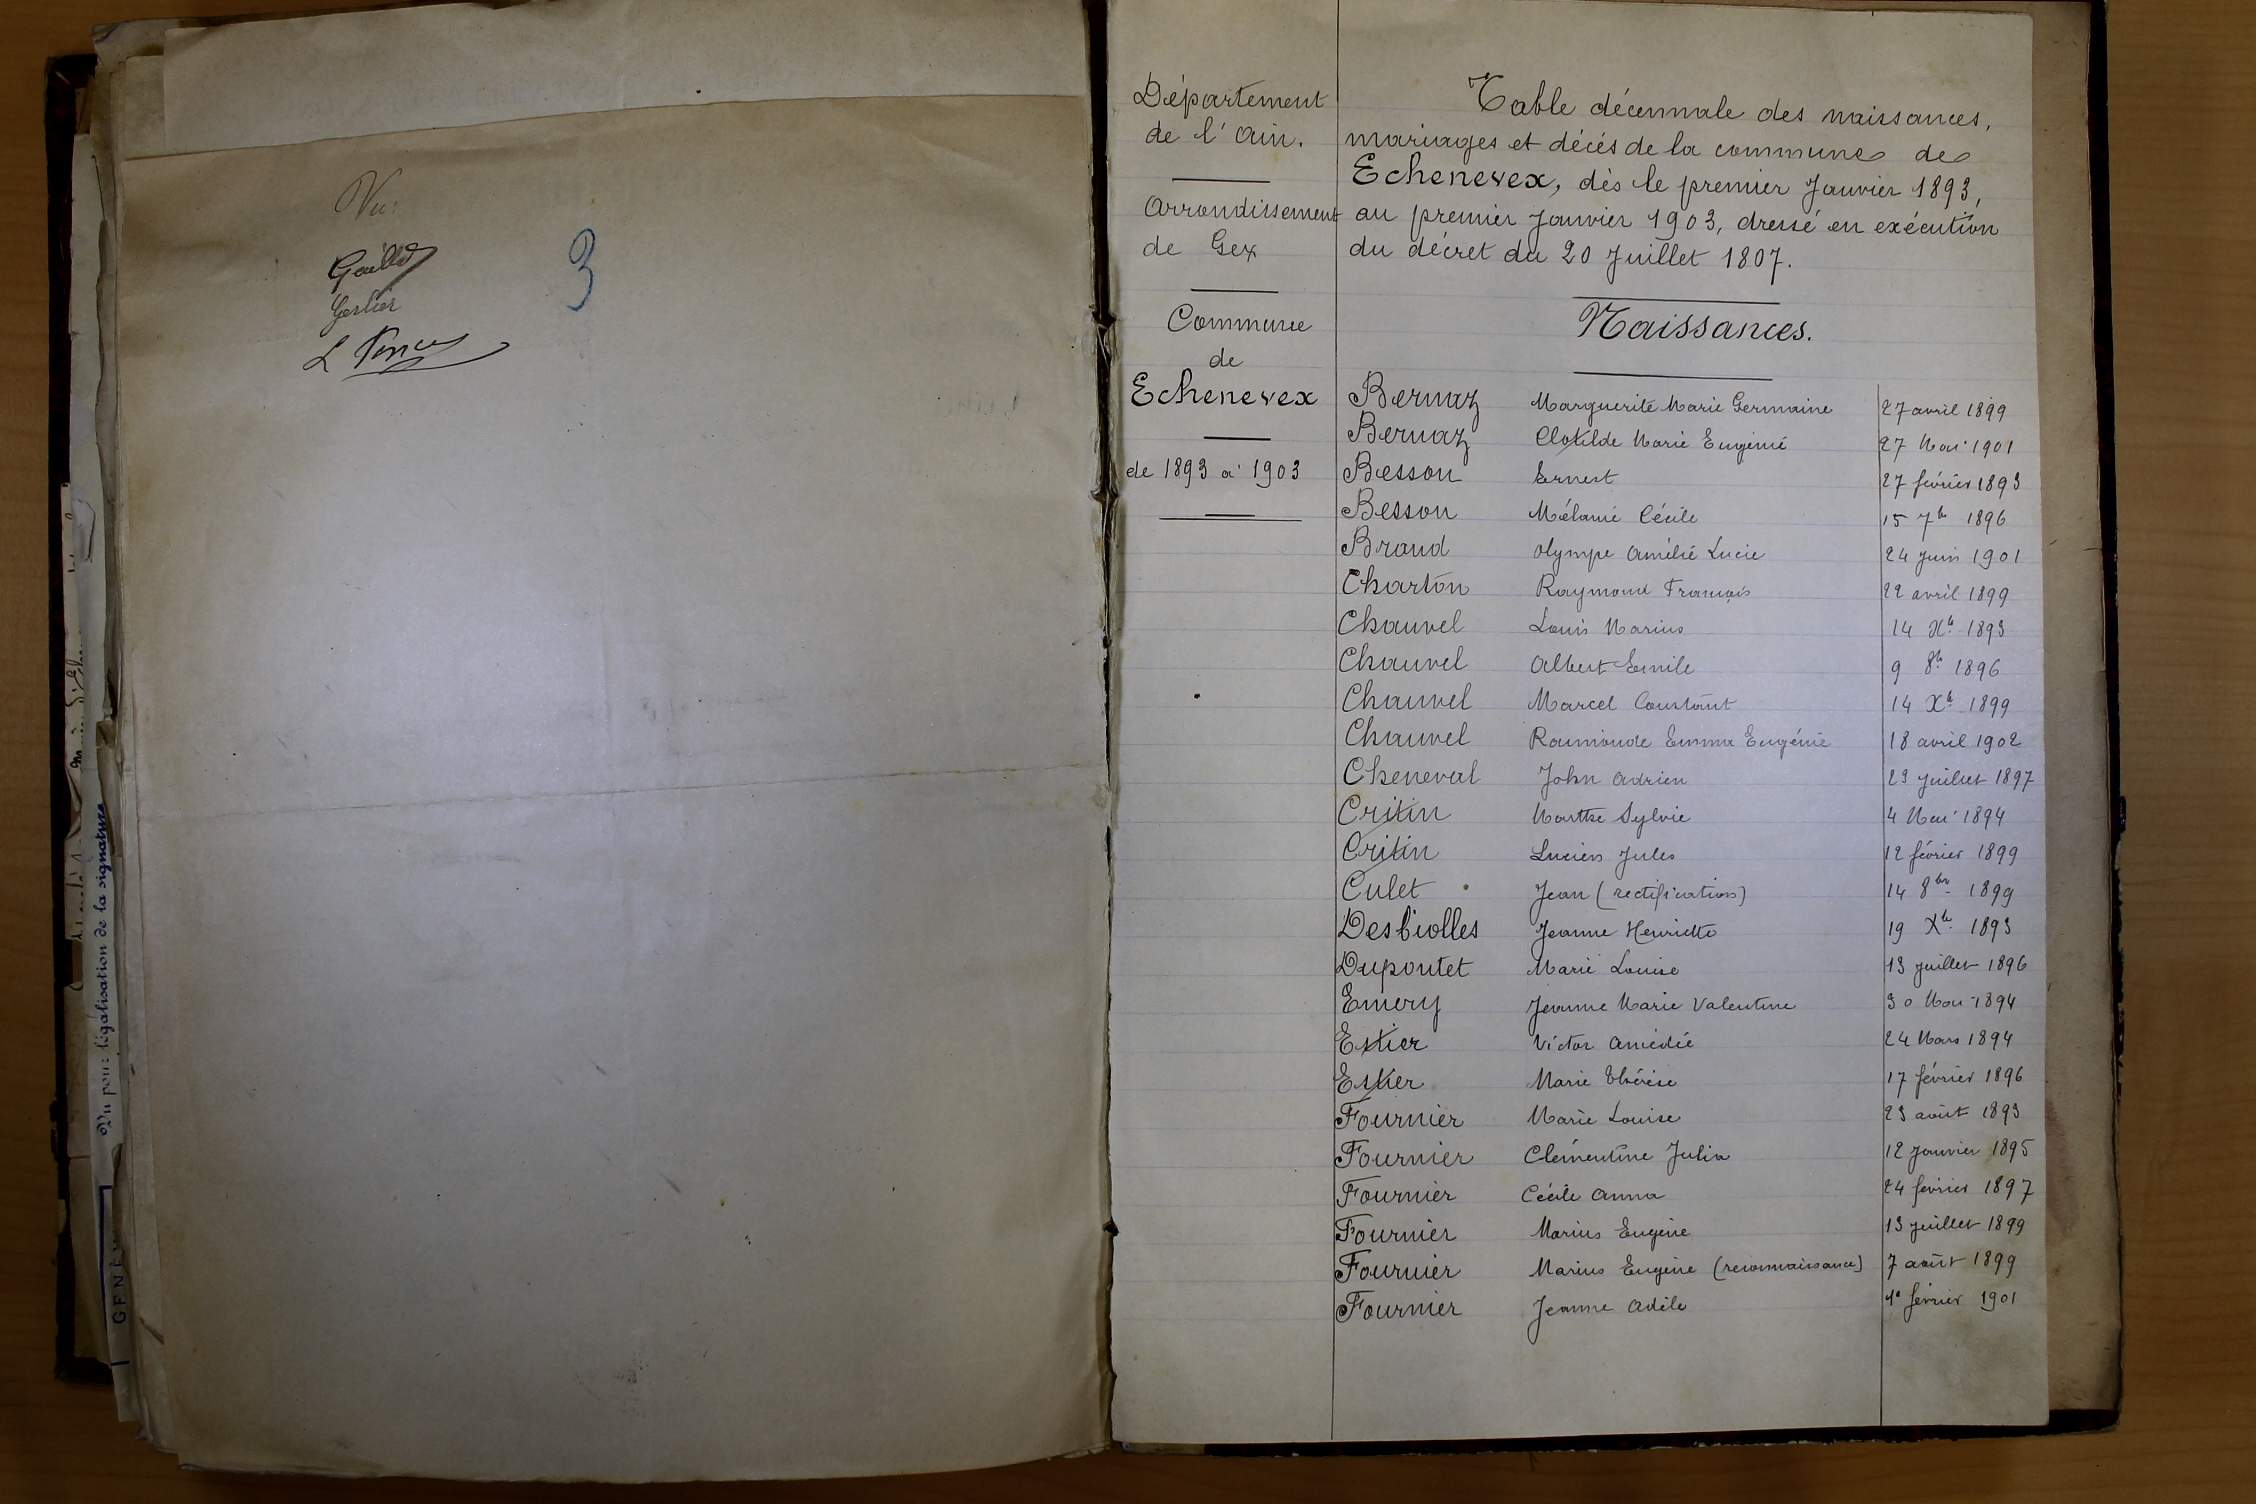 Vu:
Gerlier
3
Vu pour légalisation de la signature
GENÈV
Département
de l'Ain.
Arrondissement
de Gex
Commune
de
Echenevex
de 1893 à 1903
Table décennale des naissances,
mariages et décés de la commune de
Echenevex, dès le premier Janvier 1893,
au premier Janvier 1903, dressé en exécution
du décret du 20 Juillet 1807.
Naissances.
Bernaz Marguerite Marie Germaine 27 avril 1899
Bernaz Clotilde Marie Eugénie 27 Mai 1901
Besson Ernest 27 février 1893
Besson Mélanie Cécile 15 7bre 1896
Braud Olympe Amélie Lucie 24 Juin 1901
Charton Raymond François 22 avril 1899
Chauvel Louis Marius 14 Xbre 1893
Chauvel Albert Emile 9 8bre 1896
Chauvel Marcel Constant 14 Xbre 1899
Chauvel Raumonde Emma Eugénie 18 avril 1902
Cheneval John Adrien 23 Juillet 1897
Critin Marthe Sylvie 4 Mai 1894
Critin Lucien Jules 12 février 1899
Culet Jean (rectification) 14 8bre 1899
Desbiolles Jeanne Henriette 19 Xbre 1893
Dupontet Marie Louise 13 Juillet 1896
Emery Jeanne Marie Valentine 30 Mai 1894
Estier Victor Amédée 24 Mars 1894
Estier Marie Thérèse 17 février 1896
Fournier Marie Louise 23 août 1893
Fournier Clémentine Julia 12 Janvier 1895
Fournier Cécile Anna 24 février 1897
Fournier Marius Eugène 13 Juillet 1899
Fournier Marius Eugène (reconnaissance) 7 août 1899
Fournier Jeanne Adèle 1e février 1901